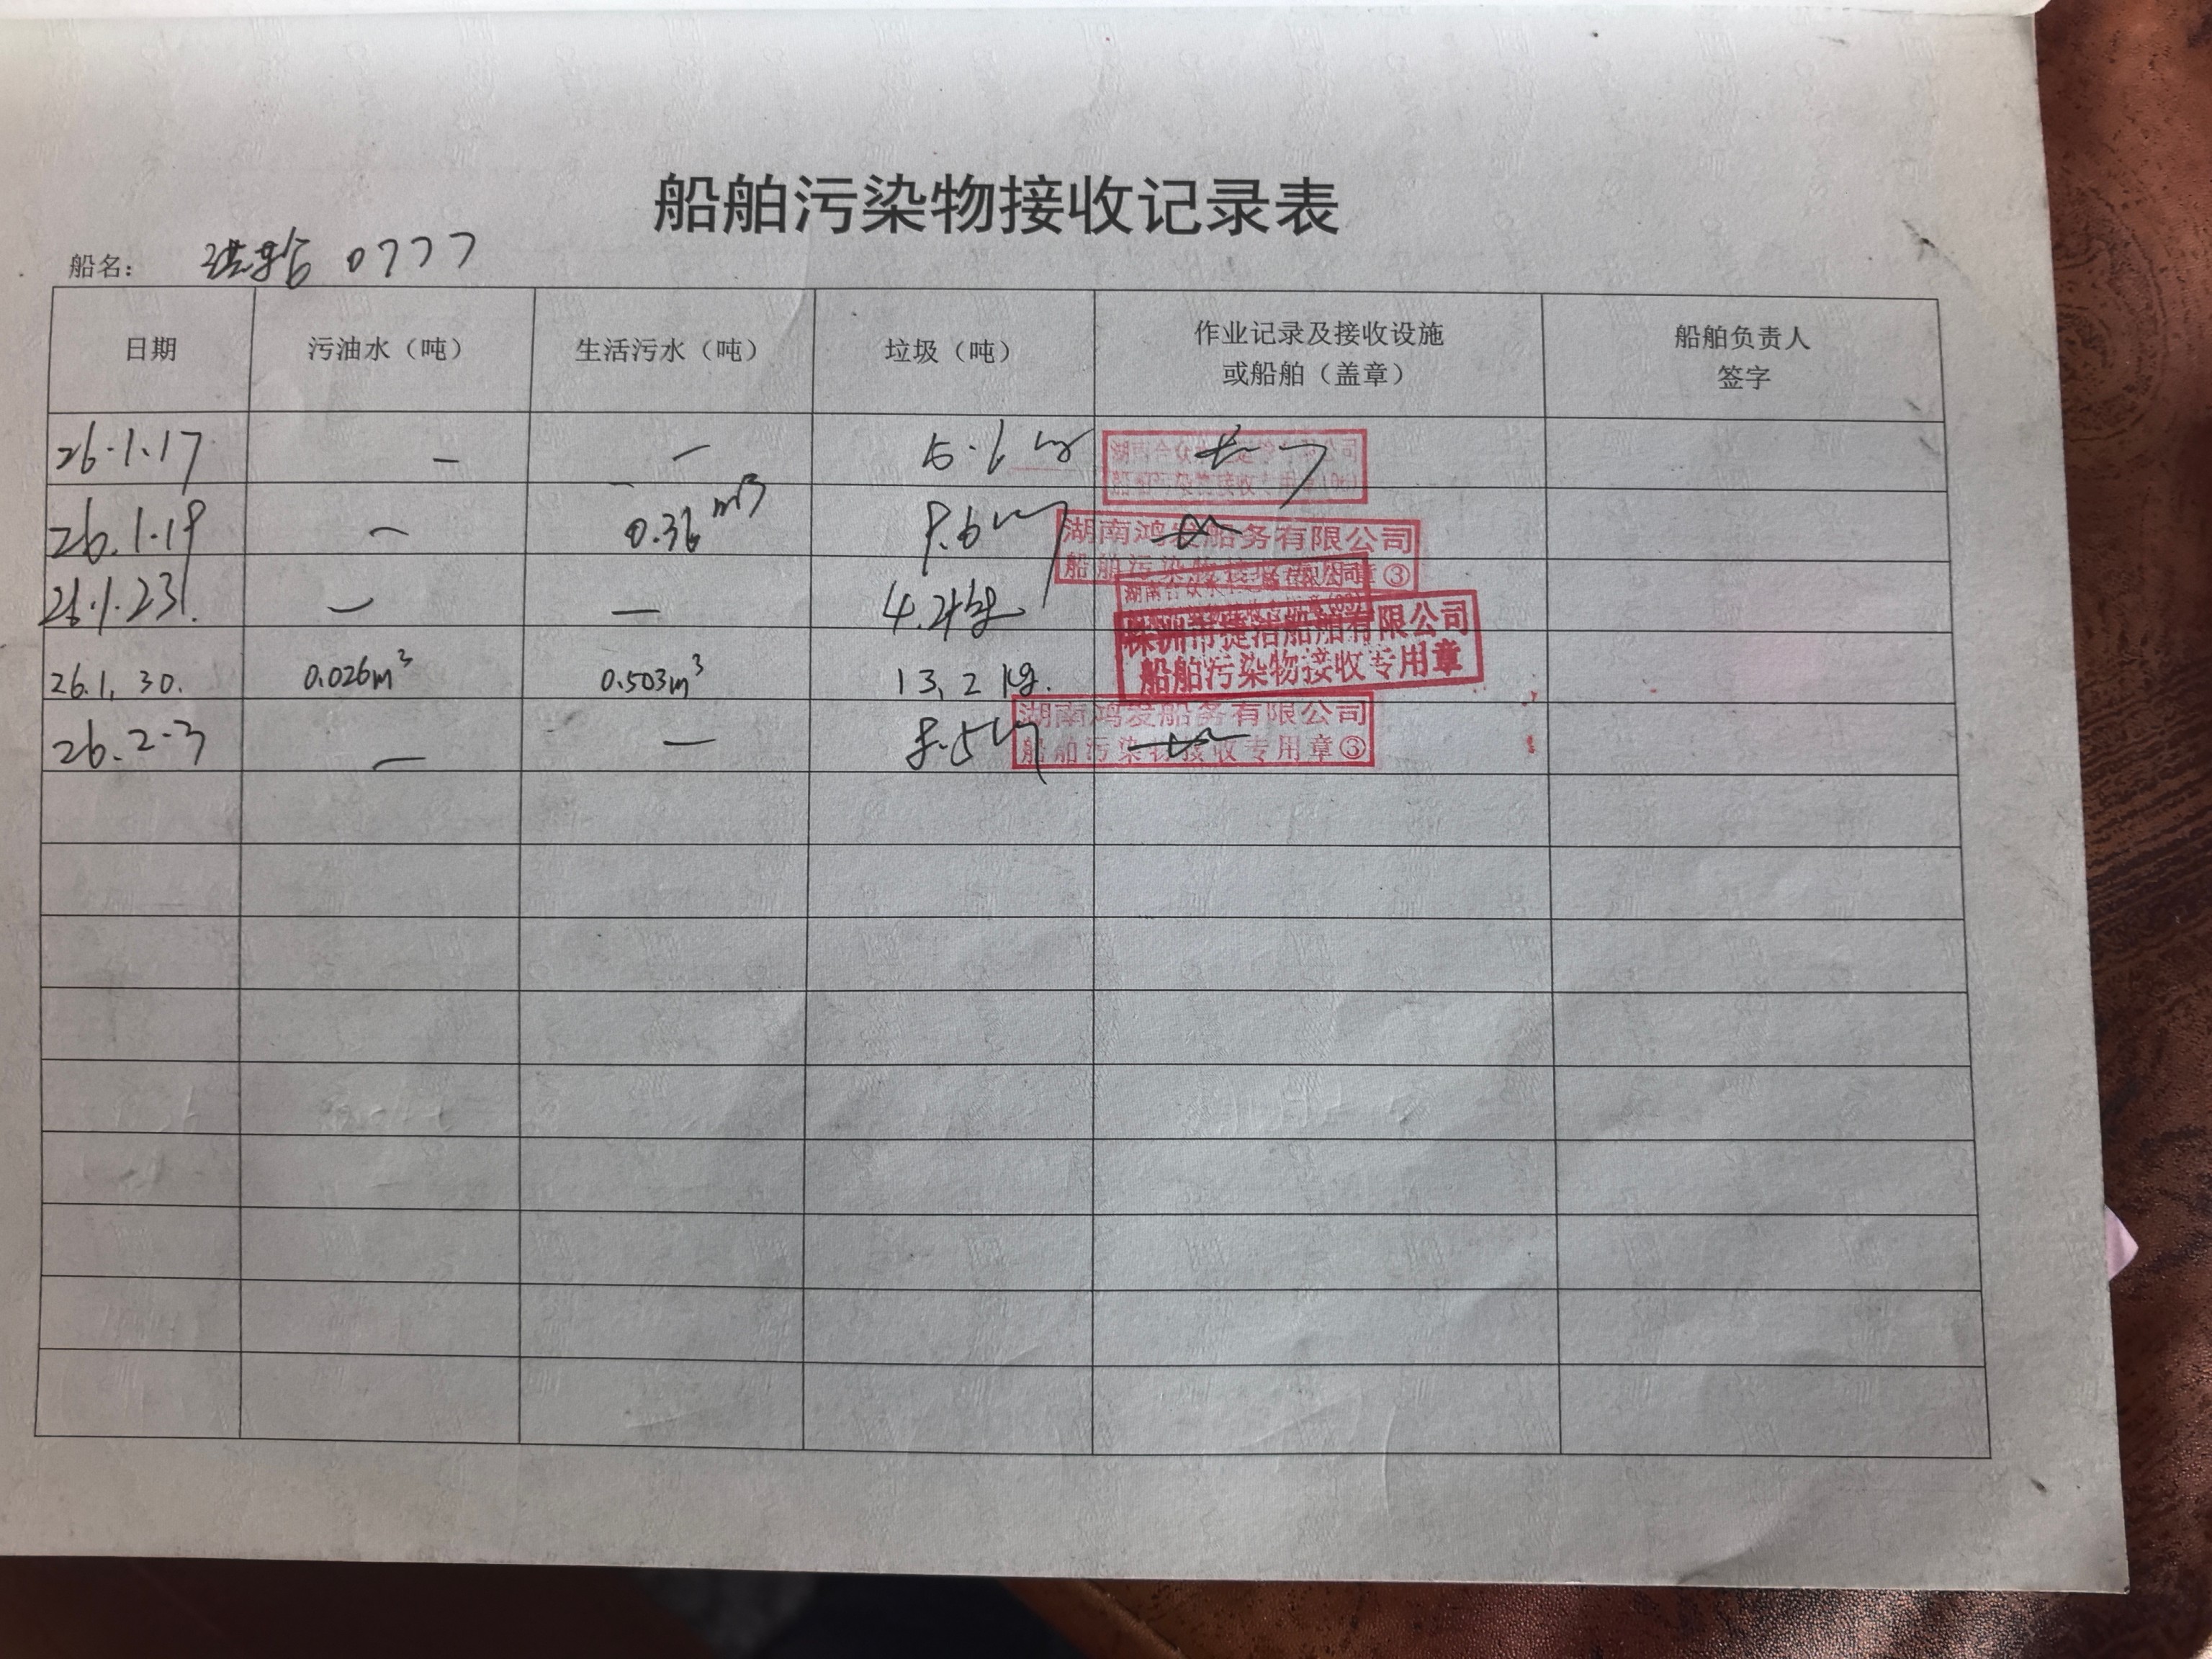 船舶污染物接收记录表
船名： 0777
日期 污油水（吨） 生活污水（吨） 垃圾（吨） 作业记录及接收设施或船舶（盖章） 船舶负责人签字
26.1.17 — —
湖南合众
26.1.19 — 0.36 m³ 8.6
湖南鸿发船务有限公司
船舶污染物接收专用章③
26.1.23. — — 4.2kg
26.1, 30. 0.026m³ 0.503m³ 13,2 kg.
株洲市捷洁船舶有限公司
船舶污染物接收专用章
26.2-3 — — 8.5
湖南鸿发船务有限公司
船舶污染物接收专用章③